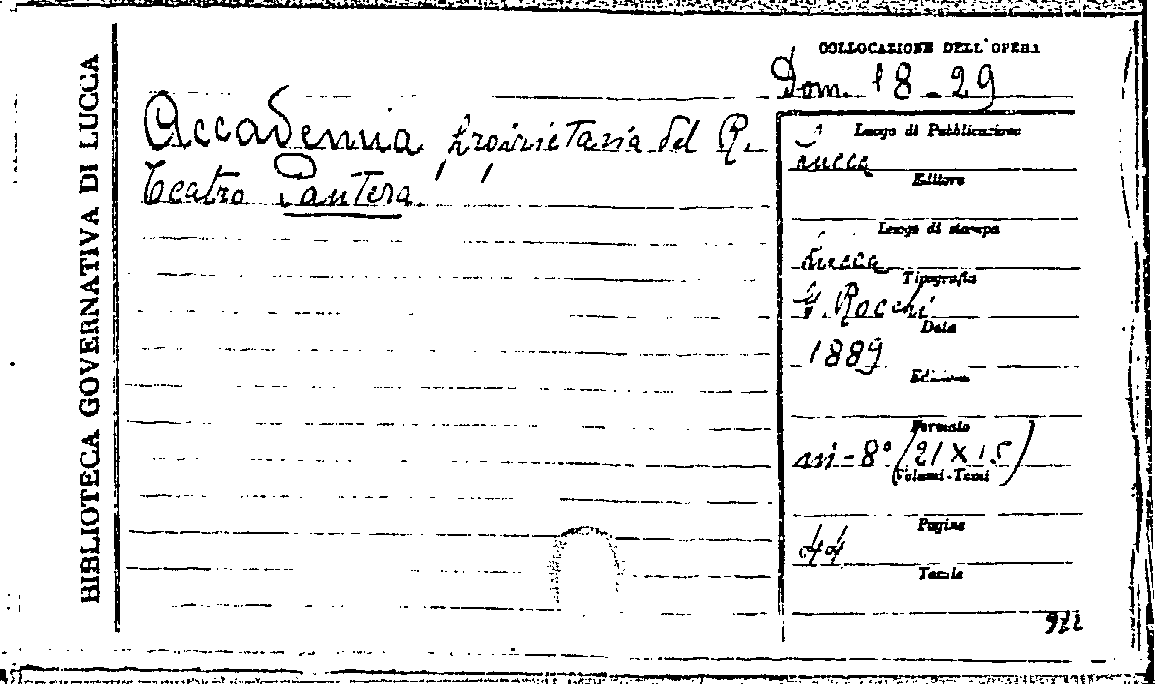 BIBLIOTECA GOVERNATIVA DI LUCCA
COLLOCAZIONE DELL'OPERA
Dom. 18-29
Accademia proprietaria del R.
Teatro Pantera.
Luogo di Pubblicazione
Lucca
Editore
Luogo di stampa
Lucca
Tipografia
G. Rocchi
Data
1889
Edizione
Formato
in-8° (21 x 15)
Volumi-Tomi
Pagine
44
Tavole